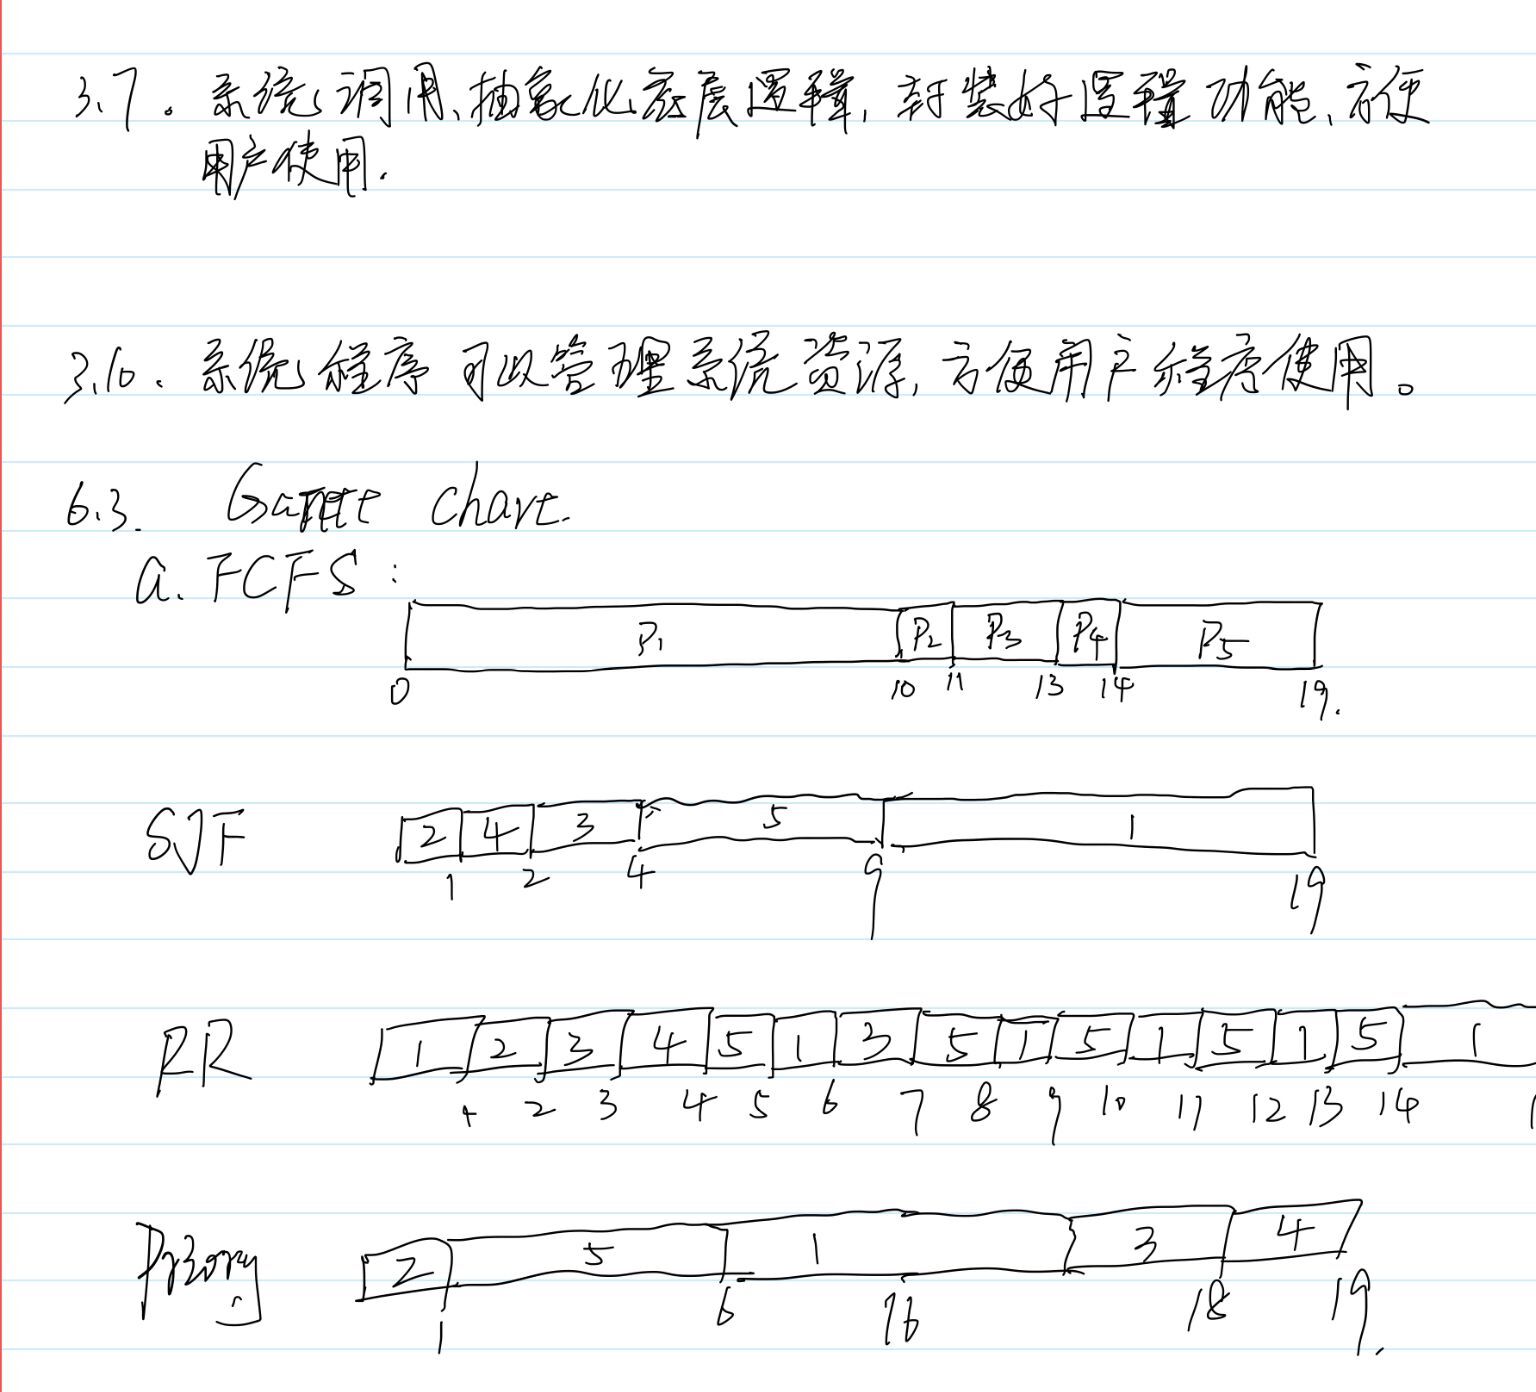 3.7。系统调用、抽象化底层逻辑,封装好逻辑功能、方便
用户使用.
3.10. 系统程序可以管理系统资源,方便用户程序使用。
6.3. Gantt chart.
a. FCFS :
P1 P2 P3 P4 P5
0 10 11 13 14 19.
SJF 2 4 3 5 1
1 2 4 9 19
RR 1 2 3 4 5 1 3 5 1 5 1 5 1 5 1
1 2 3 4 5 6 7 8 9 10 11 12 13 14
2 5 1 3 4
1 6 16 18 19.